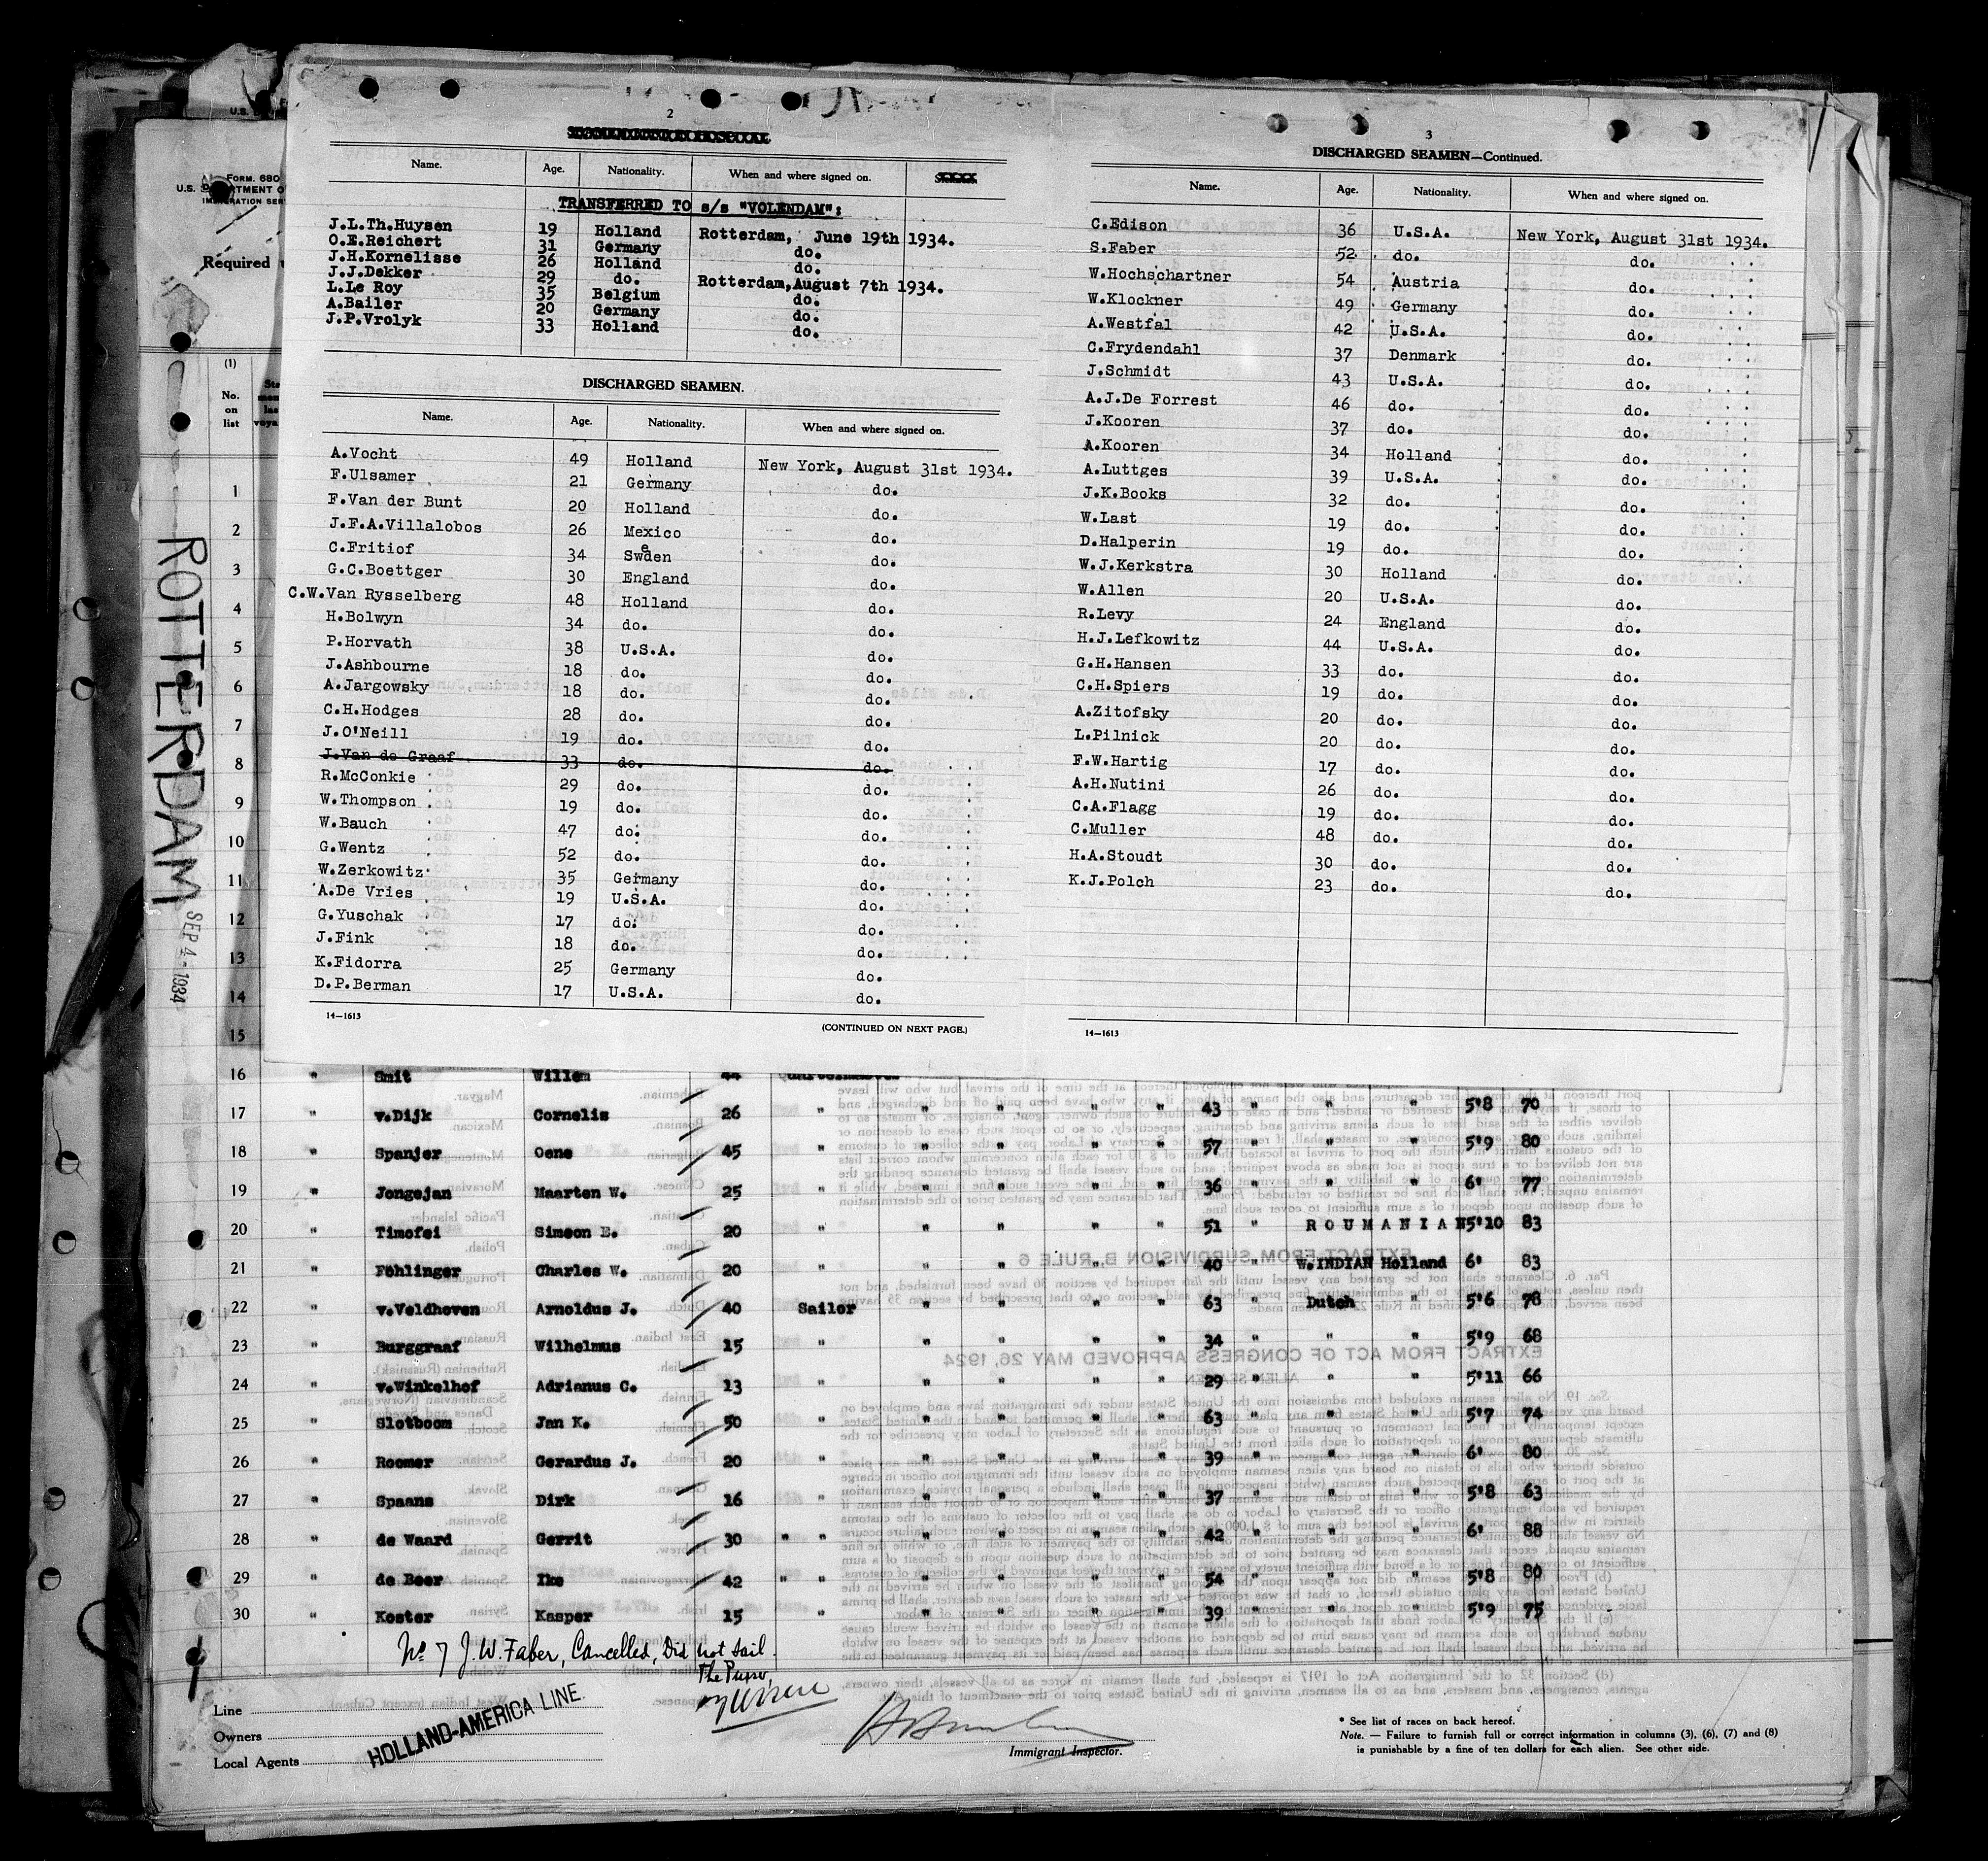 2
Name. Age. Nationality. When and where signed on.
TRANSFERRED TO s/s "VOLENDAM":
J.L.Th.Huysen 19 Holland Rotterdam, June 19th 1934.
O.E.Reichert 31 Germany do.
J.H.Kornelisse 26 Holland do.
J.J.Dekker 29 do. Rotterdam,August 7th 1934.
L.Le Roy 35 Belgium do.
A.Bailer 20 Germany do.
J.P.Vrolyk 33 Holland do.
DISCHARGED SEAMEN.
Name. Age. Nationality. When and where signed on.
A.Vocht 49 Holland New York, August 31st 1934.
F.Ulsamer 21 Germany do.
F.Van der Bunt 20 Holland do.
J.F.A.Villalobos 26 Mexico do.
C.Fritiof 34 Sweden do.
G.C.Boettger 30 England do.
C.W.Van Rysselberg 48 Holland do.
H.Bolwyn 34 do. do.
P.Horvath 38 U.S.A. do.
J.Ashbourne 18 do. do.
A.Jargowsky 18 do. do.
C.H.Hodges 28 do. do.
J.O'Neill 19 do. do.
J.Van de Graaf 33 do. do.
R.McConkie 29 do. do.
W.Thompson 19 do. do.
W.Bauch 47 do. do.
G.Wentz 52 do. do.
W.Zerkowitz 35 Germany do.
A.De Vries 19 U.S.A. do.
G.Yuschak 17 do. do.
J.Fink 18 do. do.
K.Fidorra 25 Germany do.
D.P.Berman 17 U.S.A. do.
14—1613
(CONTINUED ON NEXT PAGE.)
3
DISCHARGED SEAMEN—Continued.
Name. Age. Nationality. When and where signed on.
C.Edison 36 U.S.A. New York, August 31st 1934.
S.Faber 52 do. do.
W.Hochschartner 54 Austria do.
W.Klockner 49 Germany do.
A.Westfal 42 U.S.A. do.
C.Frydendahl 37 Denmark do.
J.Schmidt 43 U.S.A. do.
A.J.De Forrest 46 do. do.
J.Kooren 37 do. do.
A.Kooren 34 Holland do.
A.Luttges 39 U.S.A. do.
J.K.Books 32 do. do.
W.Last 19 do. do.
D.Halperin 19 do. do.
W.J.Kerkstra 30 Holland do.
W.Allen 20 U.S.A. do.
R.Levy 24 England do.
H.J.Lefkowitz 44 U.S.A. do.
G.H.Hansen 33 do. do.
C.H.Spiers 19 do. do.
A.Zitofsky 20 do. do.
L.Pilnick 20 do. do.
F.W.Hartig 17 do. do.
A.H.Nutini 26 do. do.
C.A.Flagg 19 do. do.
C.Muller 48 do. do.
H.A.Stoudt 30 do. do.
K.J.Polch 23 do. do.
14—1613
FORM. 680
U.S. DEPARTMENT O
IMMIGRATION SER
Required
(1)
No.
on
list
ROTTERDAM
SEP 4 - 1934
1
2
3
4
5
6
7
8
9
10
11
12
13
14
15
16 " Smit Willem 44
17 " v.Dijk Cornelis 26 " " " " " 43 " " " 5'8 70
18 " Spanjer Oene 45 " " " " " 57 " " " 5'9 80
19 " Jongejan Maarten W. 25 " " " " " 36 " " " 6' 77
20 " Timofei Simeon E. 20 " " " " " 51 " ROUMANIAN 5'10 83
21 " Föhlinger Charles W. 20 " " " " " 40 " W.INDIAN Holland 6' 83
22 " v.Veldhoven Arnoldus J. 40 Sailor " " " " 63 " Dutch " 5'6 78
23 " Burggraaf Wilhelmus 15 " " " " " 34 " " " 5'9 68
24 " v.Winkelhof Adrianus C. 13 " " " " " 29 " " " 5'11 66
25 " Slotboom Jan K. 50 " " " " " 63 " " " 5'7 74
26 " Roomer Gerardus J. 20 " " " " " 39 " " " 6' 80
27 " Spaans Dirk 16 " " " " " 37 " " " 5'8 63
28 " de Waard Gerrit 30 " " " " " " 42 " " " 6' 88
29 " de Beer Ike 42 " " " " " " 54 " " " 5'8 80
30 " Koster Kasper 15 " " " " " 39 " " " 5'9 75
No 7 J.W. Faber, Cancelled, Did not sail.
The Purser,
Line
Owners
Local Agents
HOLLAND-AMERICA LINE.
Immigrant Inspector.
* See list of races on back hereof.
Note. — Failure to furnish full or correct information in columns (3), (6), (7) and (8)
is punishable by a fine of ten dollars for each alien. See other side.